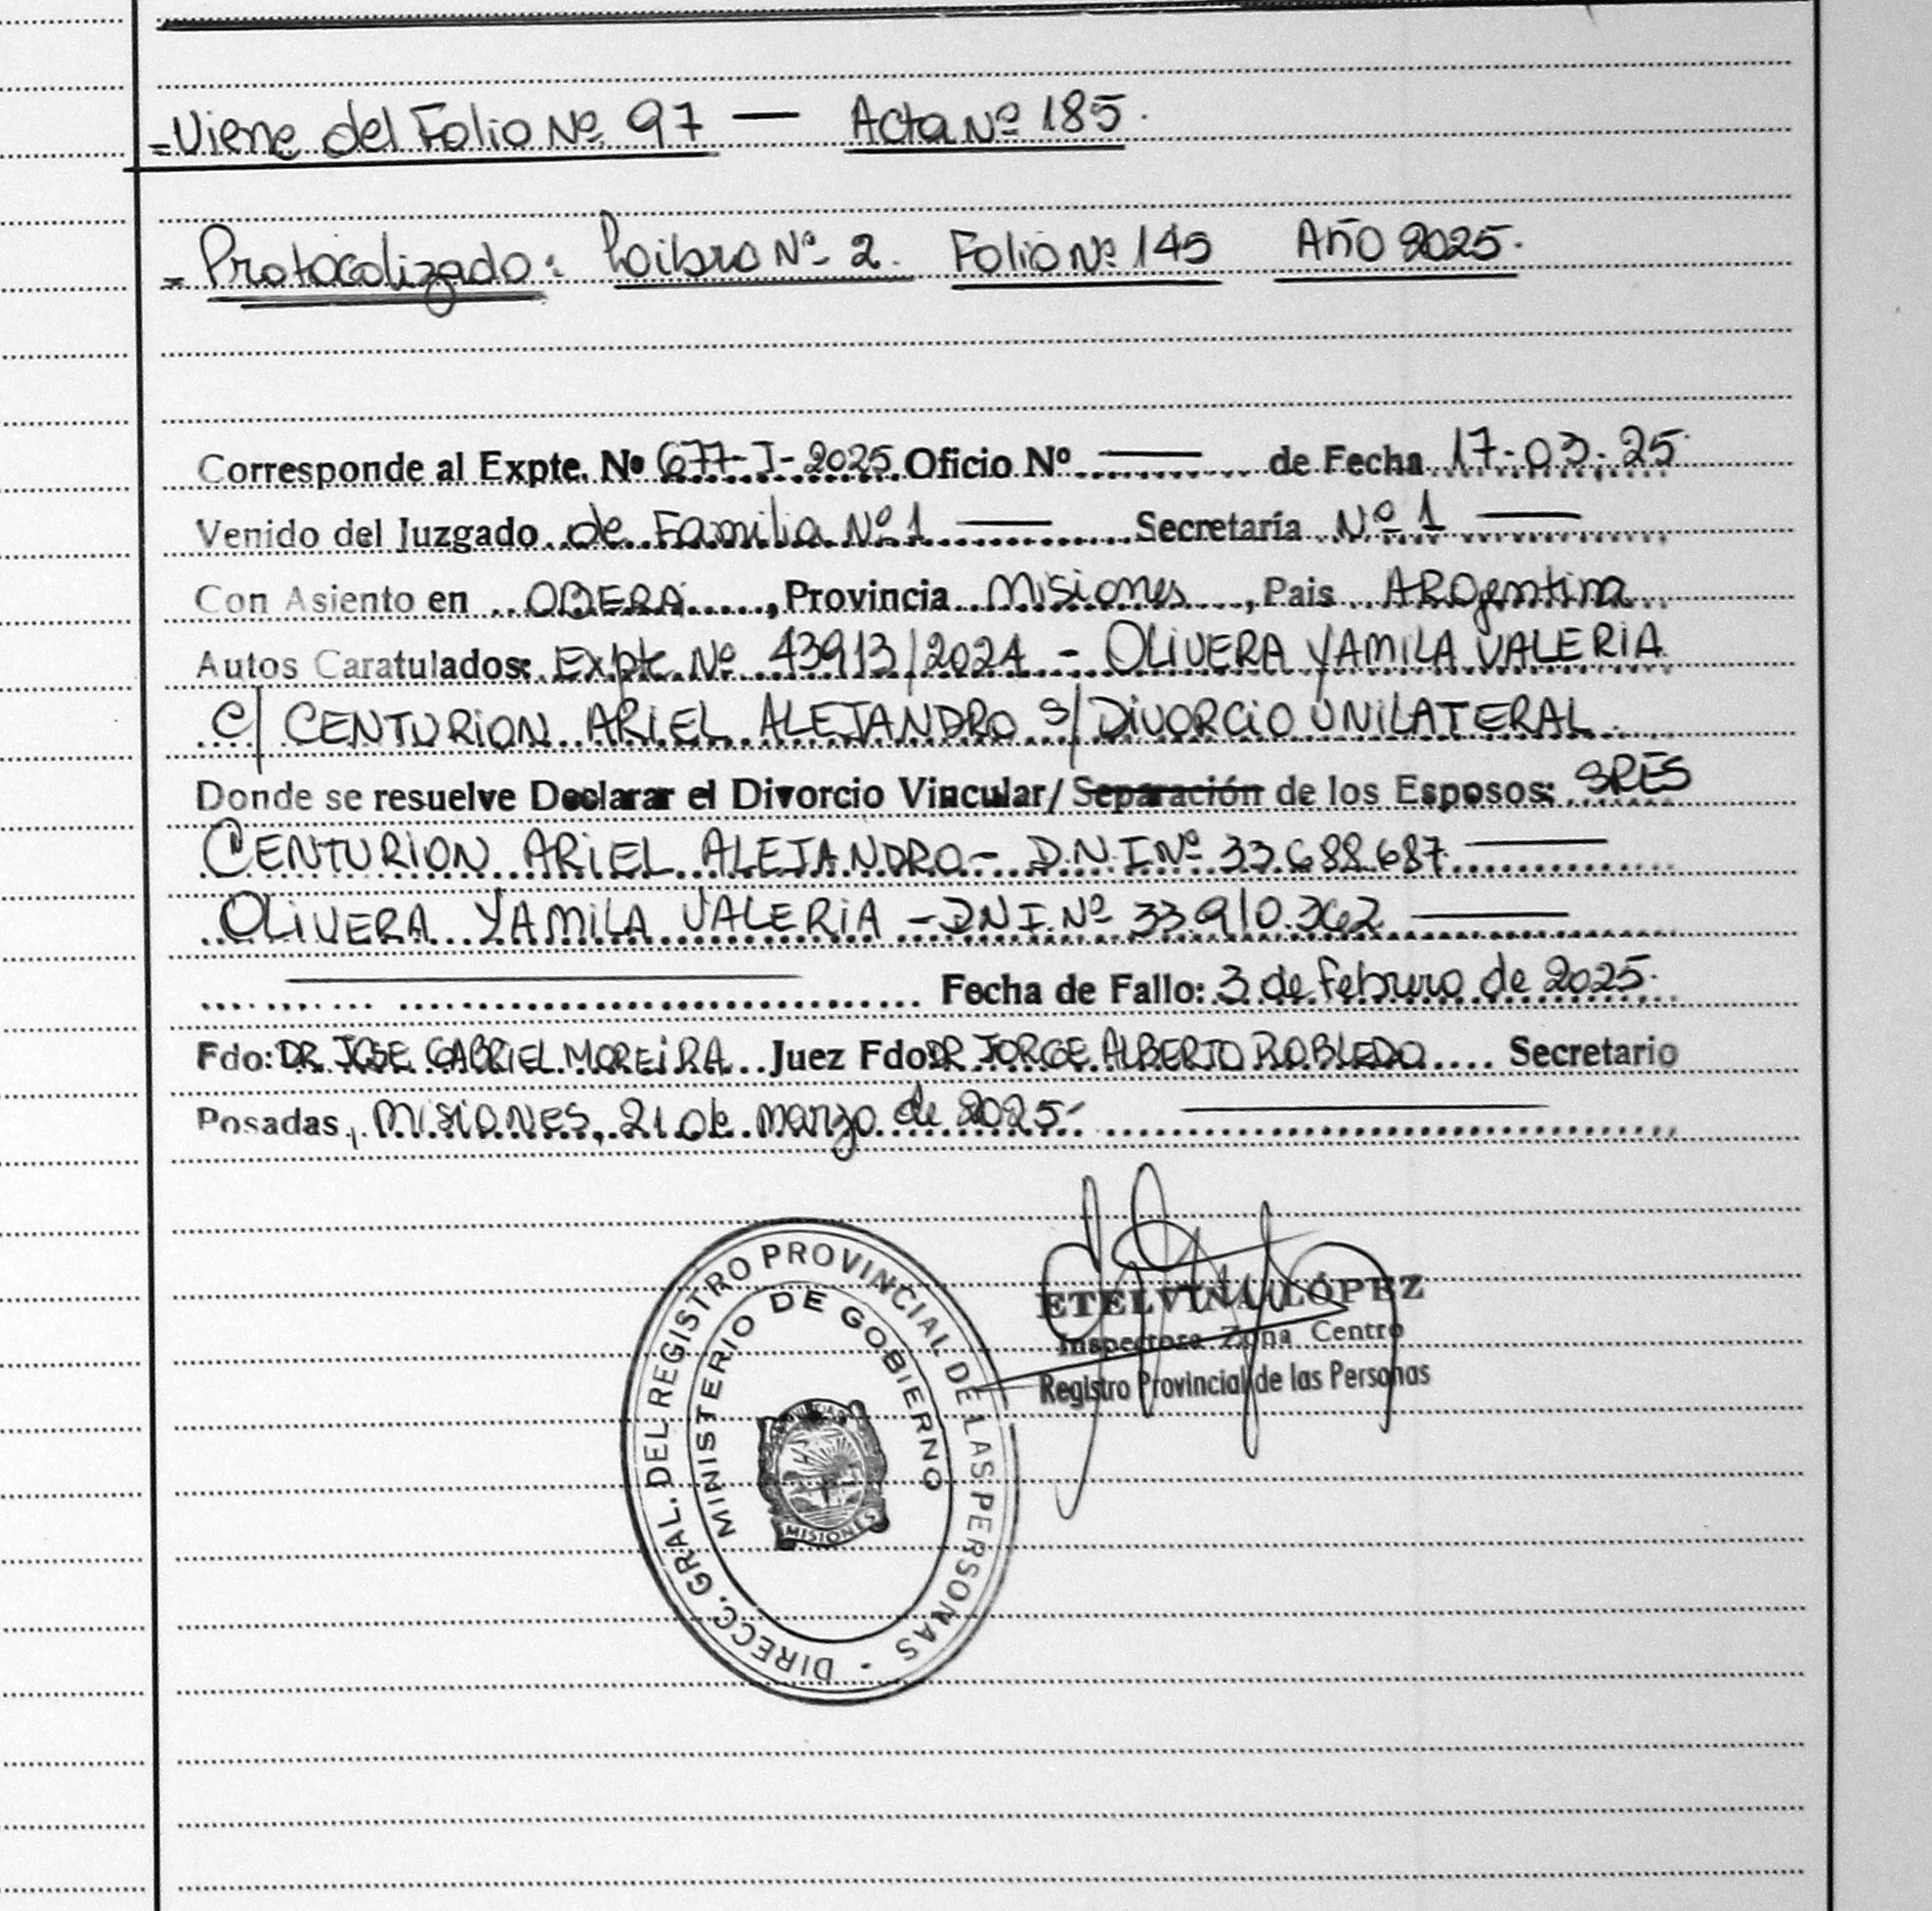 =Viene del Folio Nº 97 — Acta Nº 185.
= Protocolizado: Loibro Nº 2. Folio Nº 145 Año 2025.
Corresponde al Expte. Nº 677-I-2025 Oficio Nº —— de Fecha 17-03-25
Venido del Juzgado de Familia Nº 1 —— Secretaría Nº 1 ——
Con Asiento en OBERÁ, Provincia Misiones, Pais ARgentina
Autos Caratulados: Expte Nº 43913/2024 - OLIVERA YAMILA VALERIA
C/ CENTURION ARIEL ALEJANDRO S/ DIVORCIO UNILATERAL
Donde se resuelve Declarar el Divorcio Vincular/ Separación de los Esposos: SRES
CENTURION ARIEL ALEJANDRO - D.N.I Nº 33.688.687 ——
OLIVERA YAMILA VALERIA - DNI. Nº 33.910.362 ——
—— Fecha de Fallo: 3 de febrero de 2025.
Fdo: DR JOSE GABRIEL MOREIRA Juez Fdo: DR JORGE ALBERTO ROBLEDO Secretario
Posadas, MISIONES, 21 de marzo de 2025 ——
DIRECC. GRAL. DEL REGISTRO PROVINCIAL DE LAS PERSONAS -
MINISTERIO DE GOBIERNO
PROVINCIA DE
MISIONES
ETELVINA LÓPEZ
Inspectora Zona Centro
Registro Provincial de las Personas